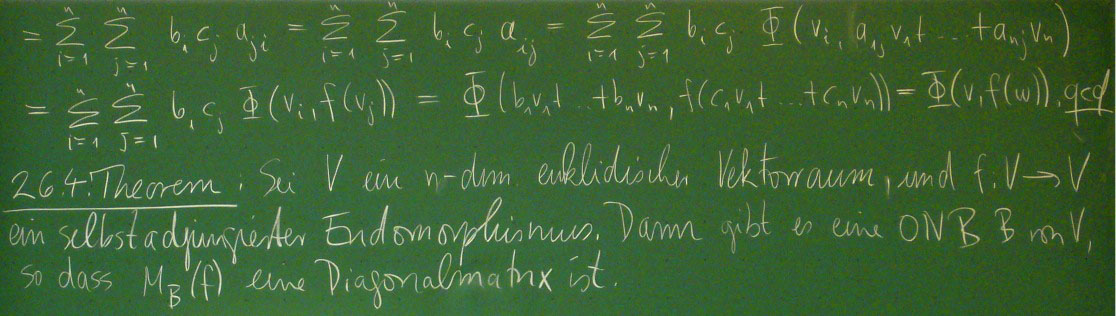 = ∑_{i=1}^{n} ∑_{j=1}^{n} b_i c_j a_{ji} = ∑_{i=1}^{n} ∑_{j=1}^{n} b_i c_j a_{ij} = ∑_{i=1}^{n} ∑_{j=1}^{n} b_i c_j Φ(v_i, a_{1j}v_1+...+a_{nj}v_n)
= ∑_{i=1}^{n} ∑_{j=1}^{n} b_i c_j Φ(v_i, f(v_j)) = Φ(b_1v_1+...+b_nv_n, f(c_1v_1+...+c_nv_n)) = Φ(v, f(w)). qed
26.4. Theorem: Sei V ein n-dim euklidischer Vektorraum, und f: V → V
ein selbstadjungierter Endomorphismus. Dann gibt es eine ONB B von V,
so dass M_B(f) eine Diagonalmatrix ist.